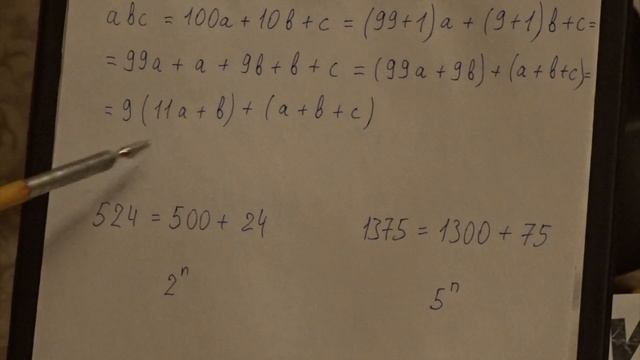 abc = 100a + 10b + c = (99+1)a + (9+1)b + c =
= 99a + a + 9b + b + c = (99a + 9b) + (a + b + c) =
= 9(11a + b) + (a + b + c)
524 = 500 + 24
1375 = 1300 + 75
2ⁿ
5ⁿ